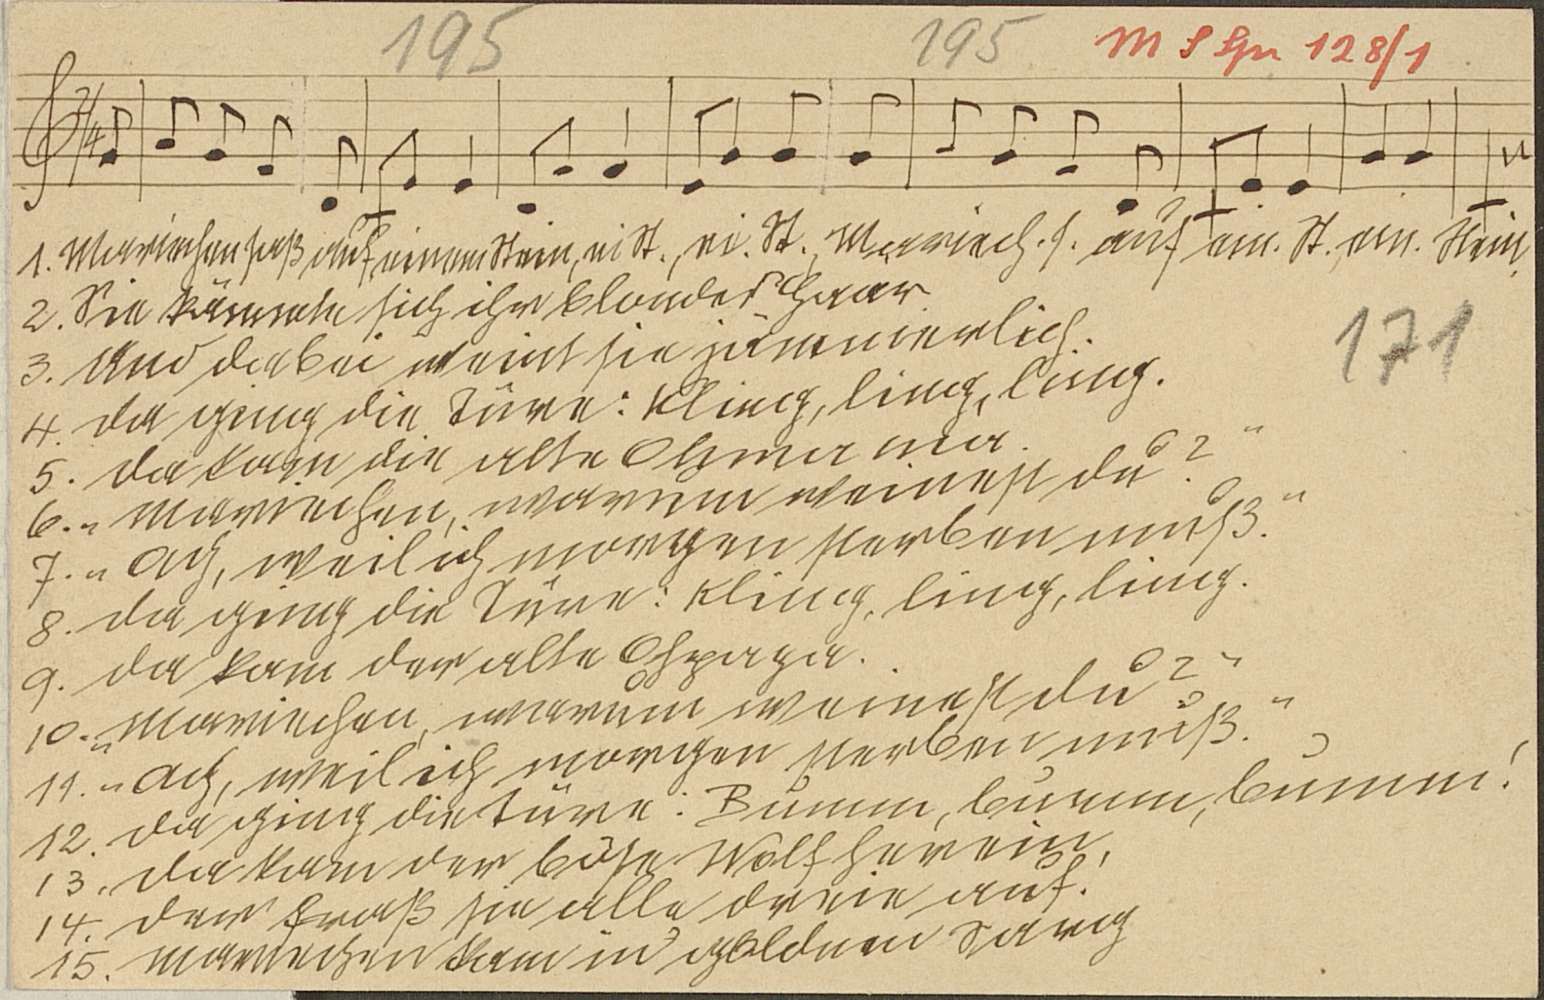 195 195 M S Gr 128/1
2/4
1. Mariechen saß auf einem Stein, ei St., ei. St., Mariech. s. auf ein. St., ein. Stein,
2. Sie kämmte sich ihr blondes Haar
171
3. Und dabei weint sie jämmerlich.
4. Da ging die Türe: Kling, ling, ling.
5. Da kam die alte Ohmama.
6. „Mariechen, warum weinest du?"
7. „Ach, weil ich morgen sterben muß."
8. Da ging die Türe: Kling, ling, ling.
9. Da kam der alte Ohpapa.
10. „Mariechen, warum weinest du?"
11. „Ach, weil ich morgen sterben muß."
12. Da ging die Türe: Bumm, bumm, bumm!
13. Da kam der böse Wolf herein,
14. Der fraß sie alle dreie auf!
15. Mariechen kam in goldnen Sarg